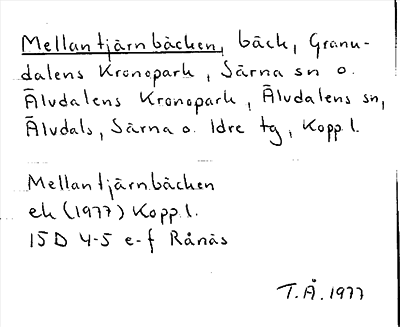 Mellantjärnbäcken, bäck, Granu-
dalens Kronopark, Särna sn o.
Älvdalens Kronopark, Älvdalens sn,
Älvdals, Särna o. Idre tg, Kopp l.
Mellantjärnbäcken
ek (1977) Kopp l.
15D 4-5 e-f Rånäs
T.Å. 1977